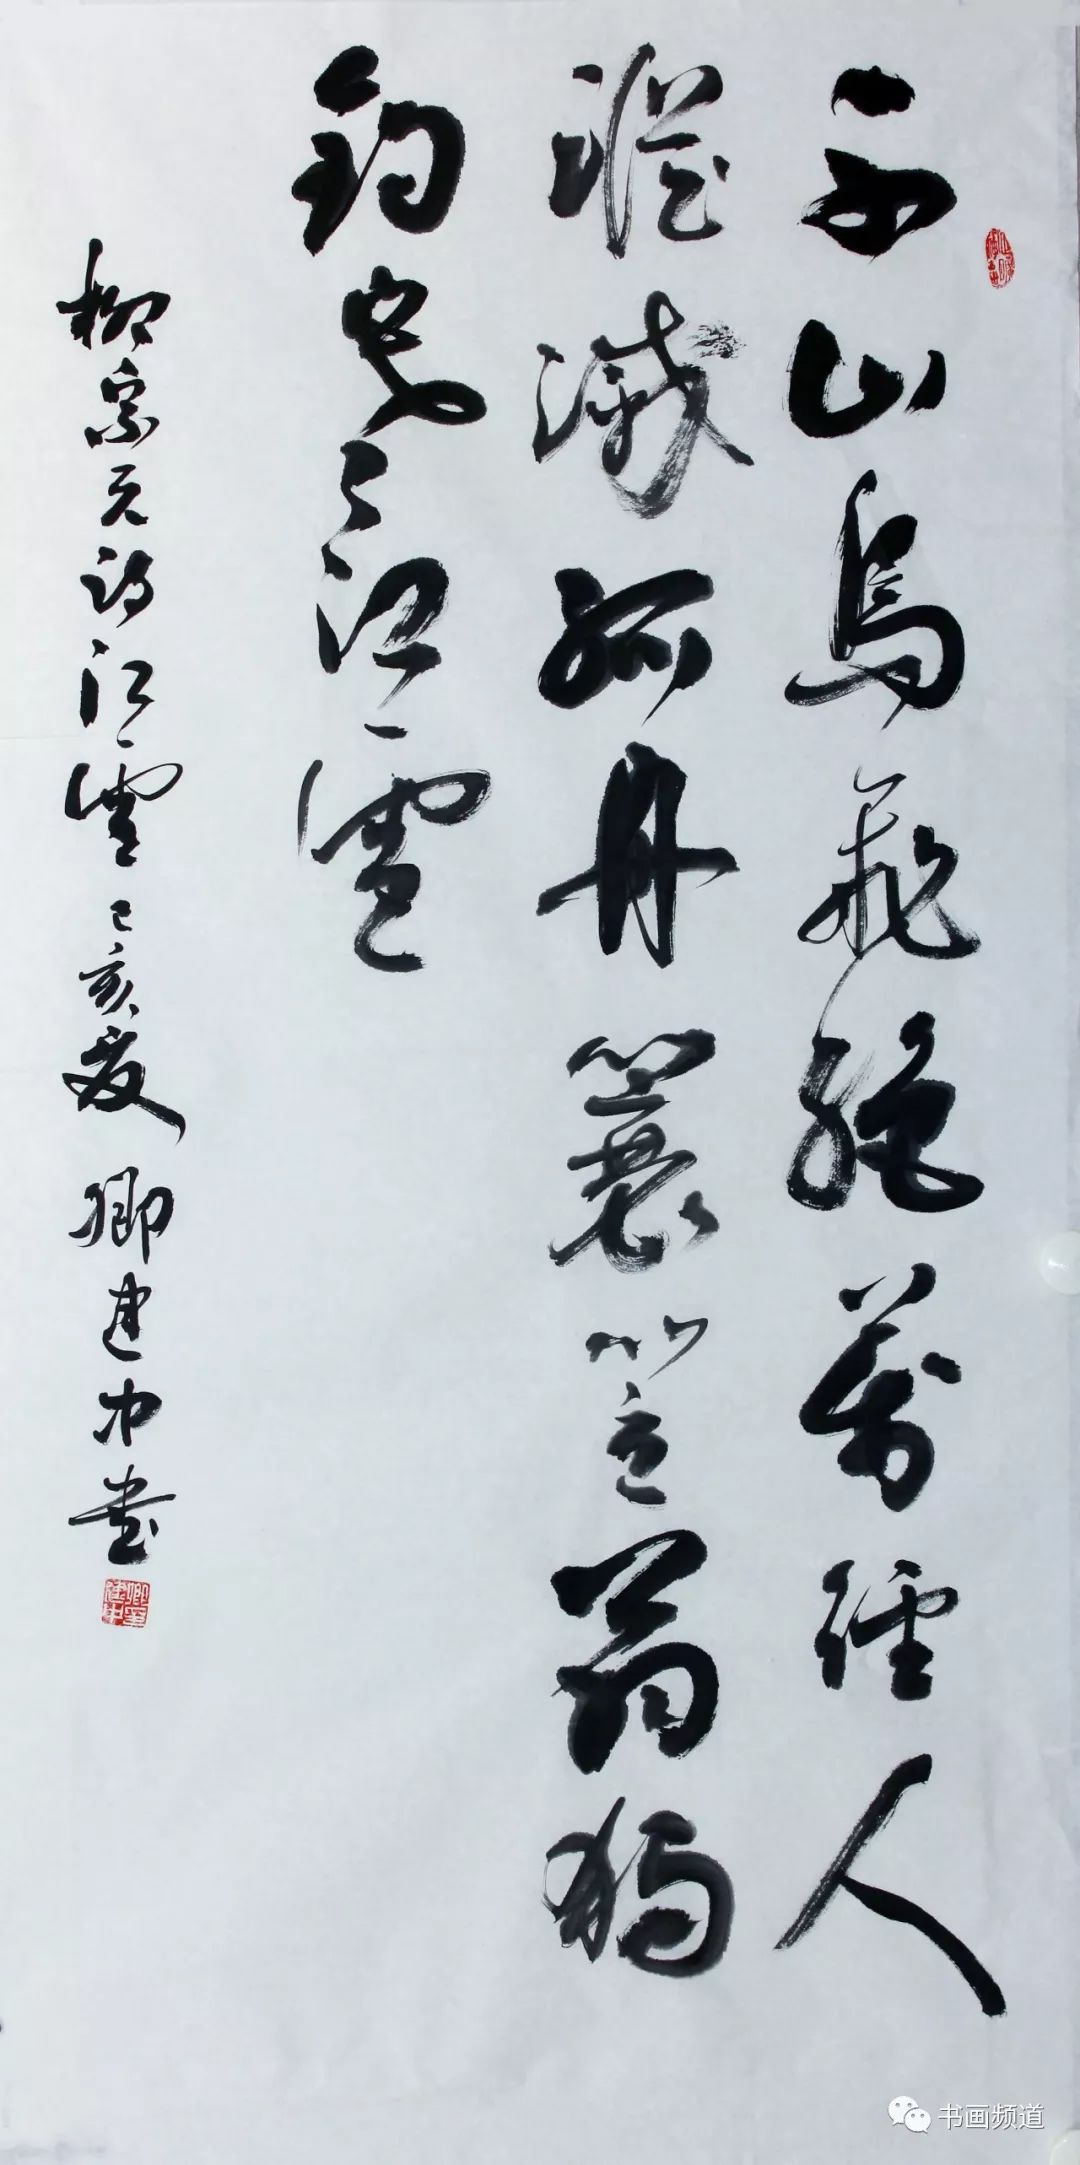 千山鳥飛絕萬徑人
蹤滅孤舟蓑笠翁獨
釣寒江雪
柳宗元詩江雪己亥夏卿建中書
卿建中
书画频道